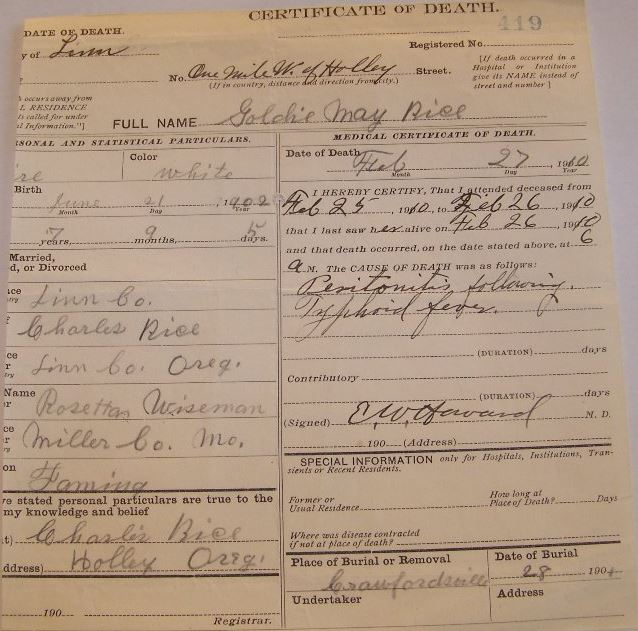 CERTIFICATE OF DEATH.
419
DATE OF DEATH.
y of Linn
Registered No.
No. One Mile W. of Holley Street.
(If in country, distance and direction from city.)
[If death occurred in a
Hospital or Institution
give its NAME instead of
street and number]
occurs away from
L RESIDENCE
ls called for under
l Information."]
FULL NAME Goldie May Rice
SONAL AND STATISTICAL PARTICULARS.
Color
white
Birth
June 21 1902
Month Day Year
7 years, 9 months, 5 days.
Married,
d, or Divorced
Linn Co.
Charles Rice
Linn Co. Oreg.
Name
Rosetta Wiseman
Miller Co. Mo.
on
Faming
ve stated personal particulars are true to the
my knowledge and belief
Charles Rice
ddress) Holley Oreg.
190
Registrar.
MEDICAL CERTIFICATE OF DEATH.
Date of Death Feb 27, 1910
Month Day Year
I HEREBY CERTIFY, That I attended deceased from
Feb 25, 1910, to Feb 26 1910
that I last saw her alive on Feb 26 1910
and that death occurred, on the date stated above, at 6
a M. The CAUSE OF DEATH was as follows:
Peritonitis following
Typhoid fever.
(DURATION) days
Contributory
(DURATION) days
(Signed) E. W. Howard M. D.
190 (Address)
SPECIAL INFORMATION only for Hospitals, Institutions, Tran-
sients or Recent Residents.
Former or
Usual Residence
How long at
Place of Death? Days
Where was disease contracted
if not at place of death?
Place of Burial or Removal
Crawfordsville
Date of Burial
28 190
Undertaker
Address